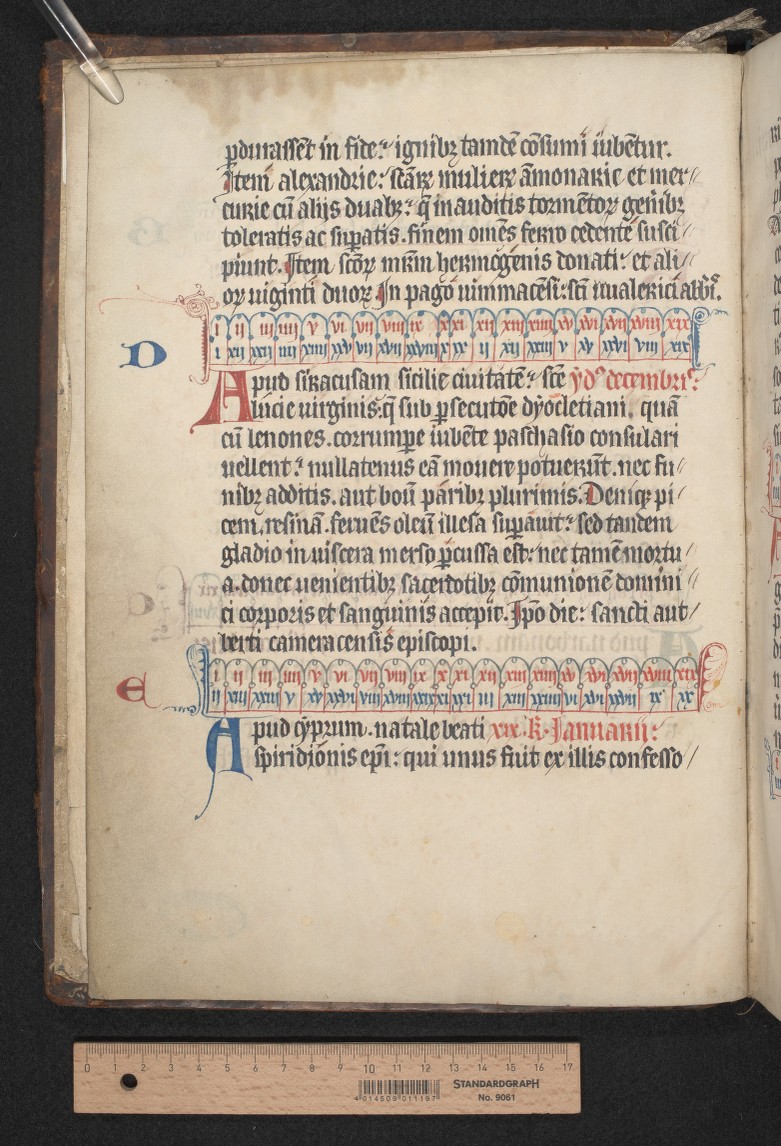 ꝑdurassēt in fide: ignibꝫ tamdē cōsumi iubētur.
Item alexandrie: scārꝝ mulierꝝ āmonarie et mer
curie cū alijs duabꝫ: q̄ inauditis tormētoꝝ genibꝫ
toleratis ac suꝑatis. finem om̄es ferro cedente susci
piunt. Item scōꝝ mr̄m hermogenis donati: et ali
oꝝ uiginti duoꝝ In pago uimmacēsi: sc̄i walerici abb̄.
i ii iii iiii v vi vii viii ix x xi xii xiii xiiii xv xvi xvii xviii xix
D
i xii xxii iiii xiiii xxv vii xvii xxviii x xx ii xii xxiii v xv xxvi viii xix
Apud siracusam sicilie ciuitatē: scē ydꝰ decembris:
lucie uirginis: q̄ sub ꝑsecutōe dyocletiani. quā
cū lenones. corrumꝑe iubēte paschasio consulari
uellent: nullatenus eā mouere potuerūt. nec fu
nibꝫ additis. aut boū paribꝫ plurimis. Deniqꝫ pi
cem, resinā. feruēs oleū illesa suꝑauit: sed tandem
gladio in uiscera merso ꝑcussa est: nec tamē mortu
a. donec uenientibꝫ sacerdotibꝫ cōmunionē domini
ci corporis et sanguinis accepit. Ip̄o die: sancti aut
berti cameracensis episcopi.
i ii iii iiii v vi vii viii ix x xi xii xiii xiiii xv xvi xvii xviii xix
E
ii xiii xxiii v xv xxvi viii xviii xxix xi xxi iii xiii xxiiii vi xvi xxvii ix xx
Apud cyprum. natale beati xix. k̄. Januarii:
spiridionis ep̄i: qui unus fuit ex illis confesso
0 1 2 3 4 5 6 7 8 9 10 11 12 13 14 15 16 17
STANDARDGRAPH
No. 9061
4 014509 011197